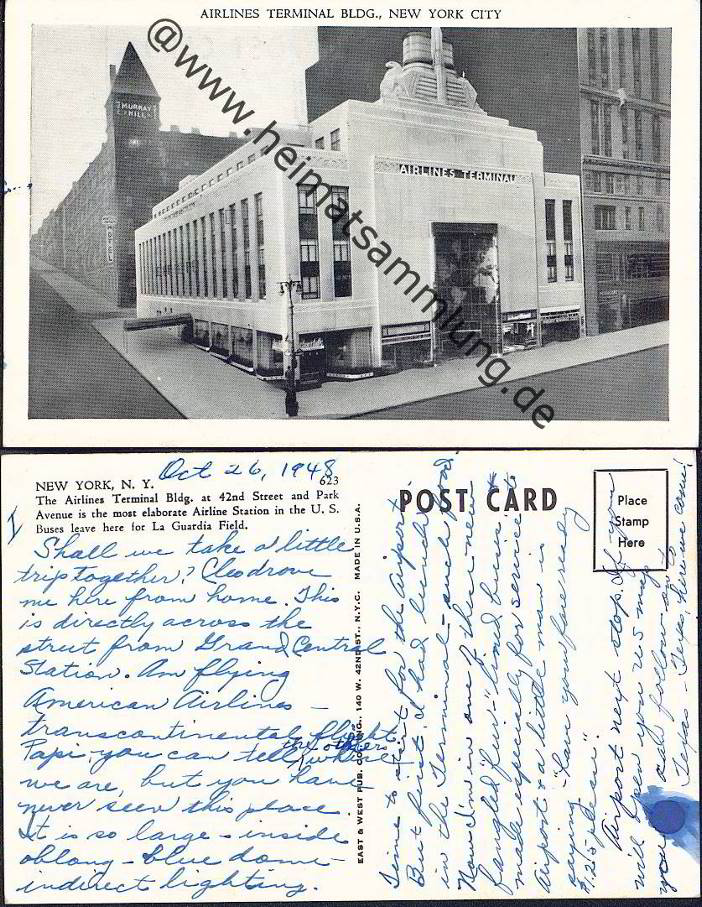 AIRLINES TERMINAL BLDG., NEW YORK CITY
@www.heimatsammlung.de
MURRAY
HILL
HOTEL
AIRLINES TERMINAL
Oct 26, 1948
NEW YORK, N. Y.
623
The Airlines Terminal Bldg. at 42nd Street and Park
Avenue is the most elaborate Airline Station in the U. S.
Buses leave here for La Guardia Field.
I
Shall we take a little
trip together? Cleo drove
me here from home. This
is directly across the
street from Grand Central
Station. Am flying
American Airlines -
transcontinental flight.
Papi, you can tell the others where
we are, but you have
never seen this place
It is so large - inside
oblong - blue dome -
indirect lighting.
EAST & WEST PUB. CO., 140 W. 42ND ST., N.Y.C. MADE IN U.S.A.
POST CARD
Place
Stamp
Here
Time to start for the airport
But first I had lunch
in the Terminal - such food
Now I'm in one of these new
fangled "four-"lined buses
made specially for service to
Airport & a little man is
saying - "have your fare ready
$1.25 please".
Airport next stop. If you
will open your US map,
you can follow us
Texas - Texas, here we come!